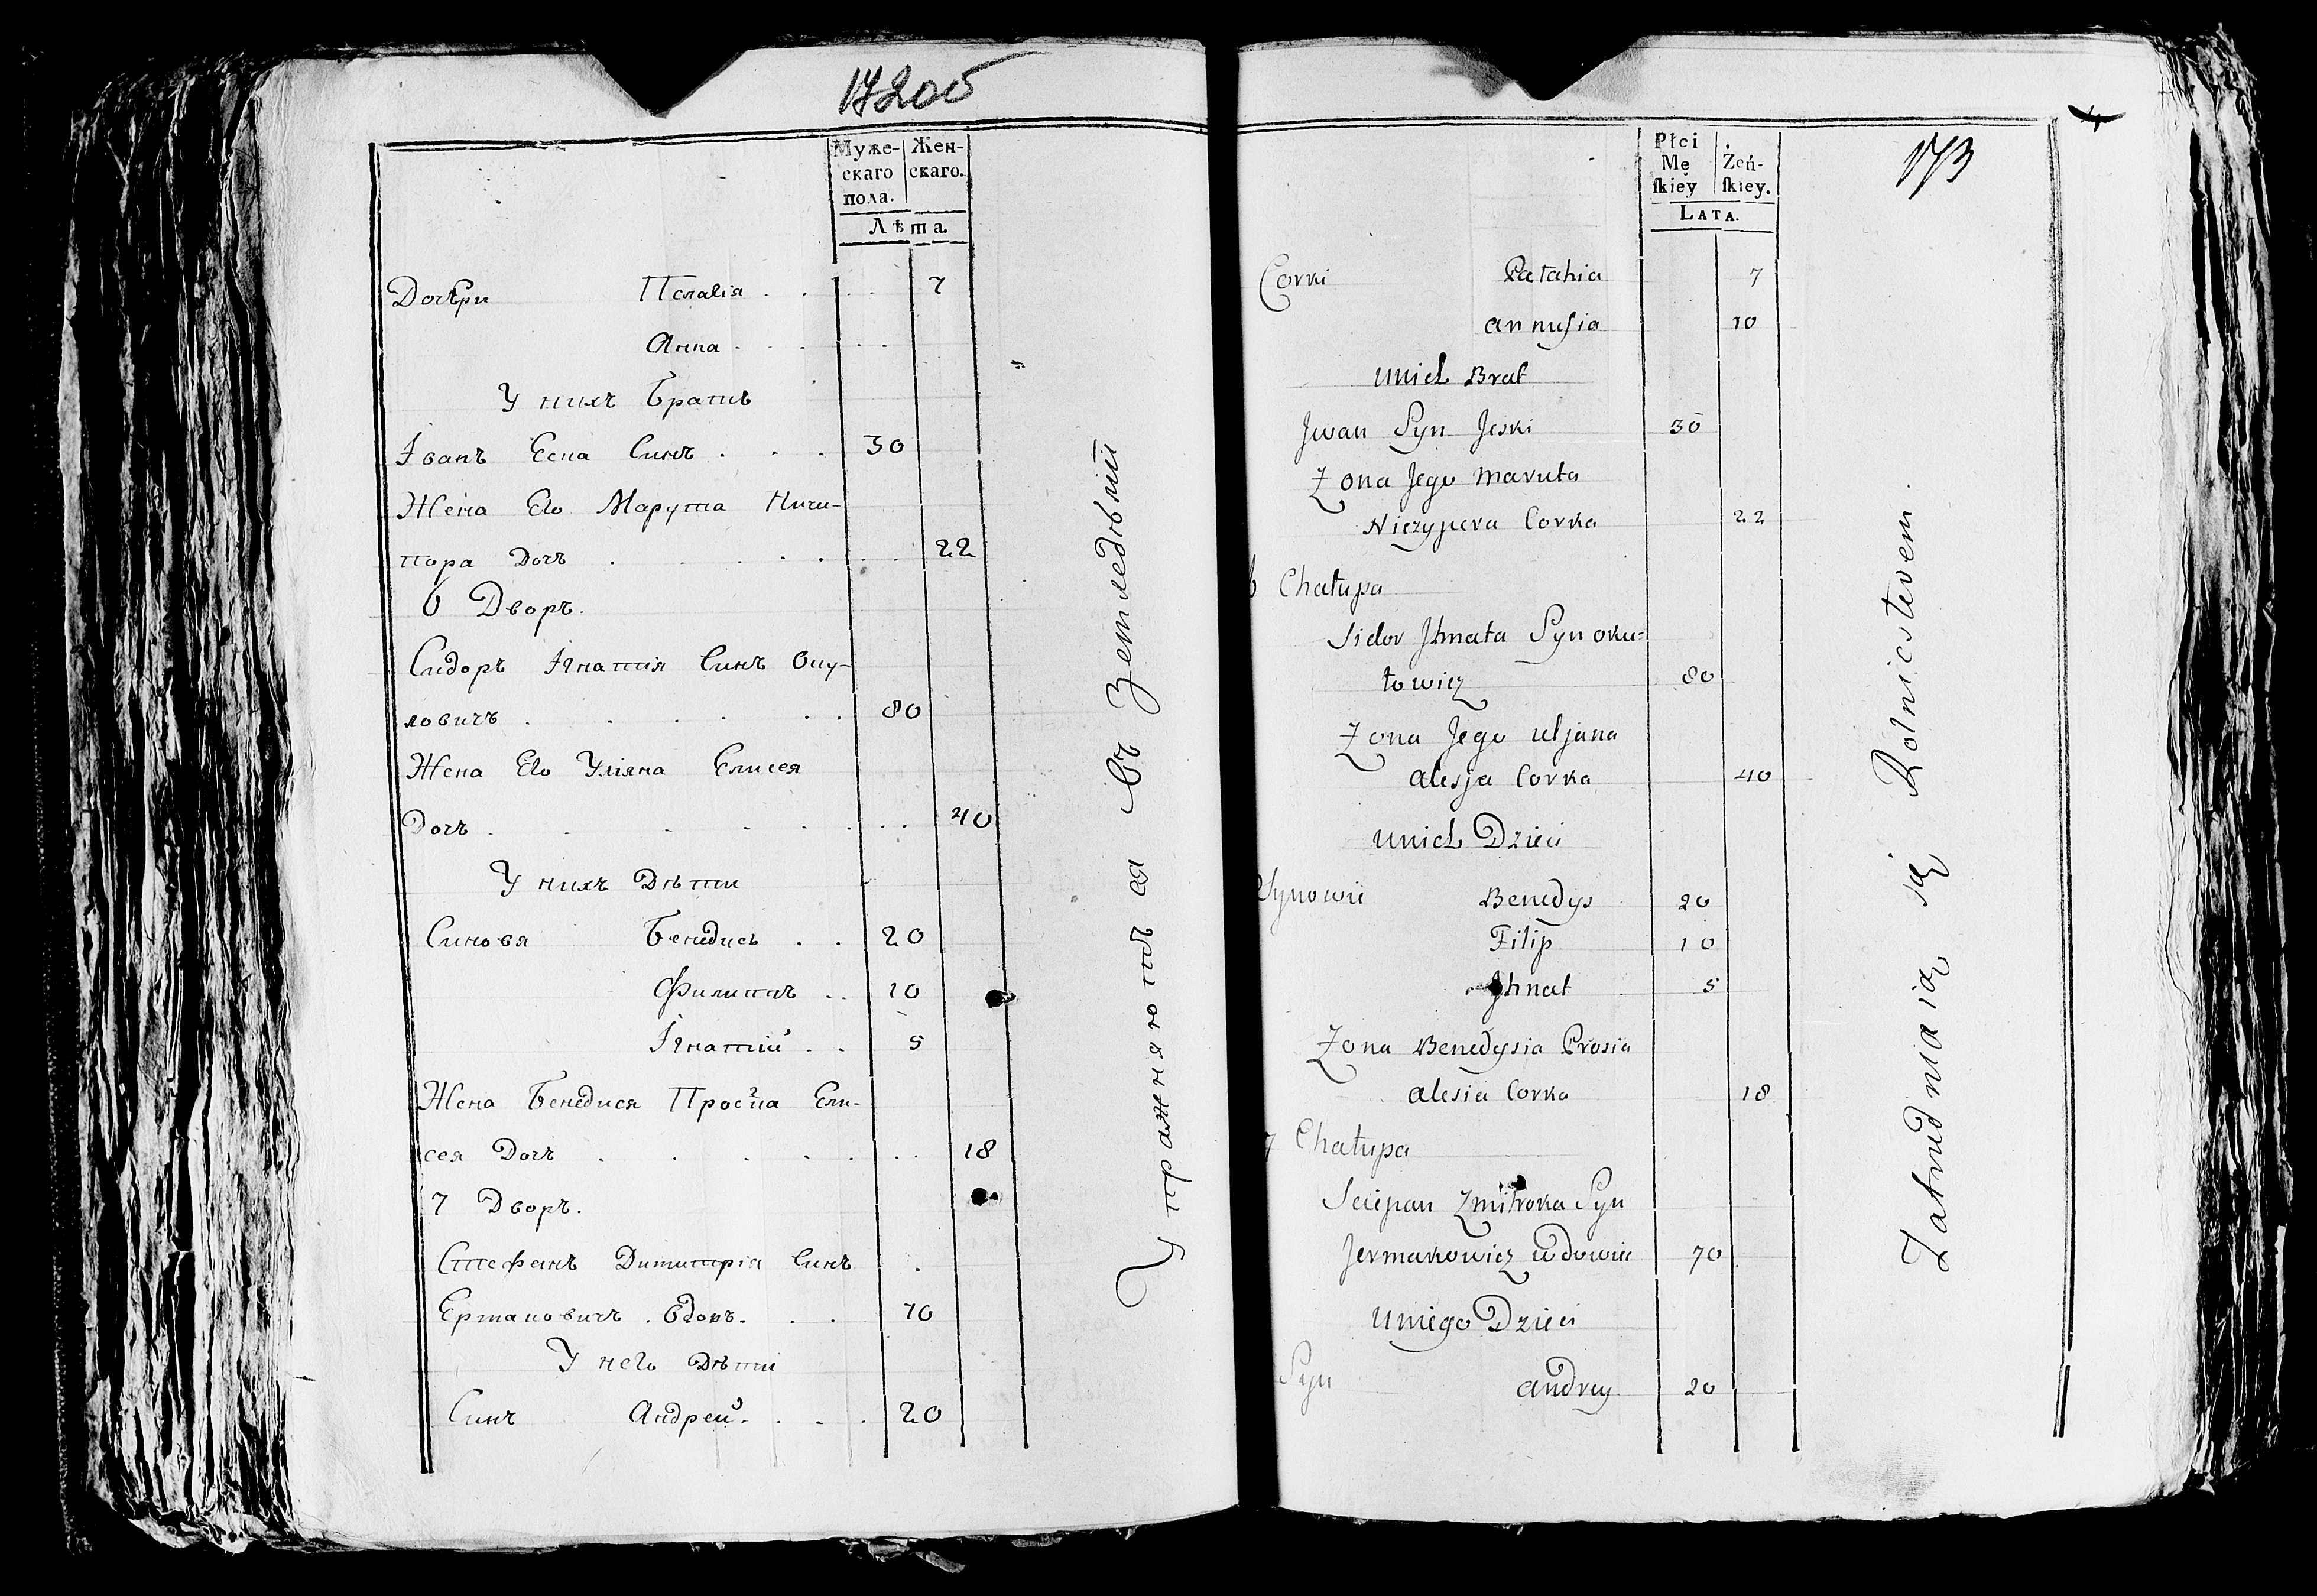 172об
Муже-
скаго
пола.
Жен-
скаго.
Лѣта.
Дочери Пелагія . . . . 7
Анна . . . . .
У нихъ Братъ
Іванъ Еска Синъ . . . 30
Жена Его Марута Ничи-
пора Дочь . . . . . 22
6 Дворъ.
Сидоръ Ігнатія Синъ Оку-
ловичъ . . . . . . 80
Жена Его Уліяна Елисея
Дочь . . . . . . . 40
У нихъ Дѣти
Синовя Бенедись . . 20
Филиппъ . . 10
Ігнатій . . 5
Жена Бенедися Просіа Ели-
сея Дочь . . . . . . 18
7 Дворъ.
Стефанъ Димитрія Синъ
Ермаковичъ . Вдовъ. . . 70
У него Дѣти
Синъ Андрей. . . . 20
Упражняются въ Земледѣліи
173
Płci
Mę
ſkiey
Żeń-
ſkiey.
LATA.
Corki Pałahia 7
Annuſia 10
U nich Brat
Jwan Syn Jeski 30
Zona Jego Maruta
Niczypera Corka 22
6 Chałupa
Sidor Jhnata Syn Oku=
łowicz 80
Zona Jego Uljana
Alesja Corka 40
U nich Dzieci
Synowie Benedys 20
Filip 10
Jhnat 5
Zona Benedysia Prosia
Alesia Corka 18
7 Chałupa
Sciepan Zmitroka Syn
Jermakowicz Wdowiec 70
U niego Dzieci
Syn Andrey 20
Zatrudniaią się Rolnictwem.